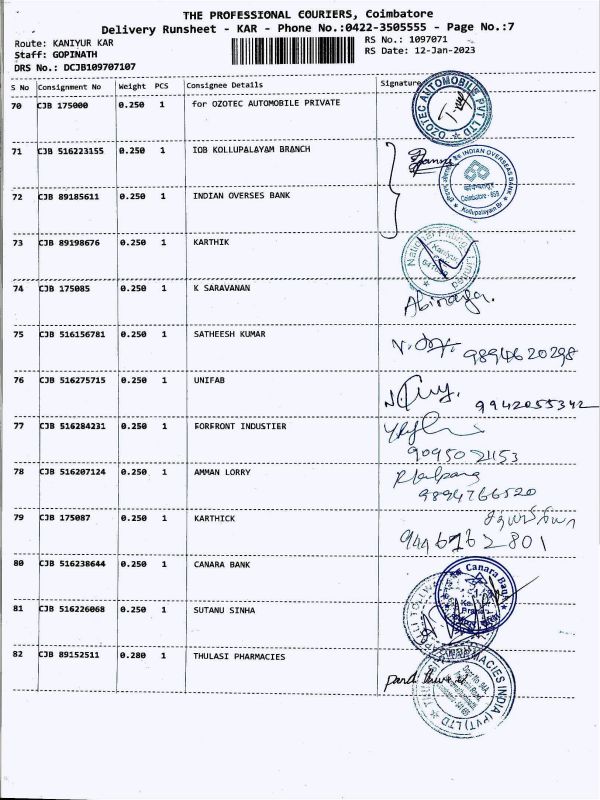 THE PROFESSIONAL COURIERS, Coimbatore
Delivery Runsheet - KAR - Phone No.:0422-3505555 - Page No.:7
Route: KANIYUR KAR
RS No.: 1097071
Staff: GOPINATH
RS Date: 12-Jan-2023
DRS No.: DCJB109707107
S No Consignment No Weight PCS Consignee Details Signature
70 CJB 175000 0.250 1 for OZOTEC AUTOMOBILE PRIVATE
OZOTEC AUTOMOBILE PVT LTD
71 CJB 516223155 0.250 1 IOB KOLLUPALAYAM BRANCH
INDIAN OVERSEAS BANK
72 CJB 89185611 0.250 1 INDIAN OVERSES BANK
Kollupalayam Br
73 CJB 89198676 0.250 1 KARTHIK
74 CJB 175085 0.250 1 K SARAVANAN
Abinaya.
75 CJB 516156781 0.250 1 SATHEESH KUMAR
9894620298
76 CJB 516275715 0.250 1 UNIFAB
9942055342
77 CJB 516284231 0.250 1 FORFRONT INDUSTIER
9095021153
78 CJB 516207124 0.250 1 AMMAN LORRY
9894766520
79 CJB 175087 0.250 1 KARTHICK
80 CJB 516238644 0.250 1 CANARA BANK
Canara Bank
81 CJB 516226068 0.250 1 SUTANU SINHA
82 CJB 89152511 0.280 1 THULASI PHARMACIES